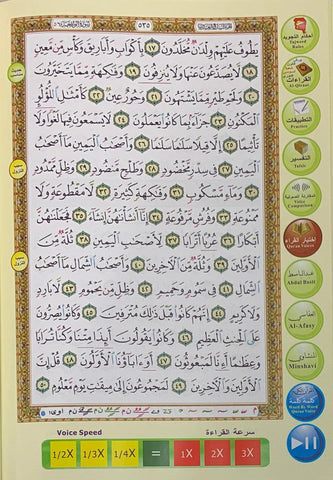 ٥٣٥
يَطُوفُ عَلَيْهِمْ وِلْدَٰنٌ مُّخَلَّدُونَ ١٧ بِأَكْوَابٍ وَأَبَارِيقَ وَكَأْسٍ مِّن مَّعِينٍ
١٨ لَّا يُصَدَّعُونَ عَنْهَا وَلَا يُنزِفُونَ ١٩ وَفَٰكِهَةٍ مِّمَّا يَتَخَيَّرُونَ
٢٠ وَلَحْمِ طَيْرٍ مِّمَّا يَشْتَهُونَ ٢١ وَحُورٌ عِينٌ ٢٢ كَأَمْثَٰلِ ٱللُّؤْلُؤِ
ٱلْمَكْنُونِ ٢٣ جَزَآءًۢ بِمَا كَانُوا۟ يَعْمَلُونَ ٢٤ لَا يَسْمَعُونَ فِيهَا لَغْوًا وَلَا
تَأْثِيمًا ٢٥ إِلَّا قِيلًا سَلَٰمًا سَلَٰمًا ٢٦ وَأَصْحَٰبُ ٱلْيَمِينِ مَآ أَصْحَٰبُ
ٱلْيَمِينِ ٢٧ فِى سِدْرٍ مَّخْضُودٍ ٢٨ وَطَلْحٍ مَّنضُودٍ ٢٩ وَظِلٍّ مَّمْدُودٍ
٣٠ وَمَآءٍ مَّسْكُوبٍ ٣١ وَفَٰكِهَةٍ كَثِيرَةٍ ٣٢ لَّا مَقْطُوعَةٍ وَلَا
مَمْنُوعَةٍ ٣٣ وَفُرُشٍ مَّرْفُوعَةٍ ٣٤ إِنَّآ أَنشَأْنَٰهُنَّ إِنشَآءً ٣٥ فَجَعَلْنَٰهُنَّ
أَبْكَارًا ٣٦ عُرُبًا أَتْرَابًا ٣٧ لِّأَصْحَٰبِ ٱلْيَمِينِ ٣٨ ثُلَّةٌ مِّنَ
ٱلْأَوَّلِينَ ٣٩ وَثُلَّةٌ مِّنَ ٱلْءَاخِرِينَ ٤٠ وَأَصْحَٰبُ ٱلشِّمَالِ مَآ أَصْحَٰبُ
ٱلشِّمَالِ ٤١ فِى سَمُومٍ وَحَمِيمٍ ٤٢ وَظِلٍّ مِّن يَحْمُومٍ ٤٣ لَّا بَارِدٍ
وَلَا كَرِيمٍ ٤٤ إِنَّهُمْ كَانُوا۟ قَبْلَ ذَٰلِكَ مُتْرَفِينَ ٤٥ وَكَانُوا۟ يُصِرُّونَ
عَلَى ٱلْحِنثِ ٱلْعَظِيمِ ٤٦ وَكَانُوا۟ يَقُولُونَ أَئِذَا مِتْنَا وَكُنَّا تُرَابًا
وَعِظَٰمًا أَءِنَّا لَمَبْعُوثُونَ ٤٧ أَوَءَابَآؤُنَا ٱلْأَوَّلُونَ ٤٨ قُلْ إِنَّ
ٱلْأَوَّلِينَ وَٱلْءَاخِرِينَ ٤٩ لَمَجْمُوعُونَ إِلَىٰ مِيقَٰتِ يَوْمٍ مَّعْلُومٍ ٥٠
أحكام التجويد
Tajweed Rules
القراءات
Al-Qiraat
التطبيقات
Practice
التفسير
Tafsir
مقارنة الصوتية
Voice Comparison
اختيار القراء
Quran Voices
عبدالباسط
Abdul Basit
العفاسي
Al-Afasy
المنشاوي
Minshavi
كلمة كلمة
Word By Word
Quran Voice
Voice Speed
سرعة القراءة
1/2X 1/3X 1/4X = 1X 2X 3X